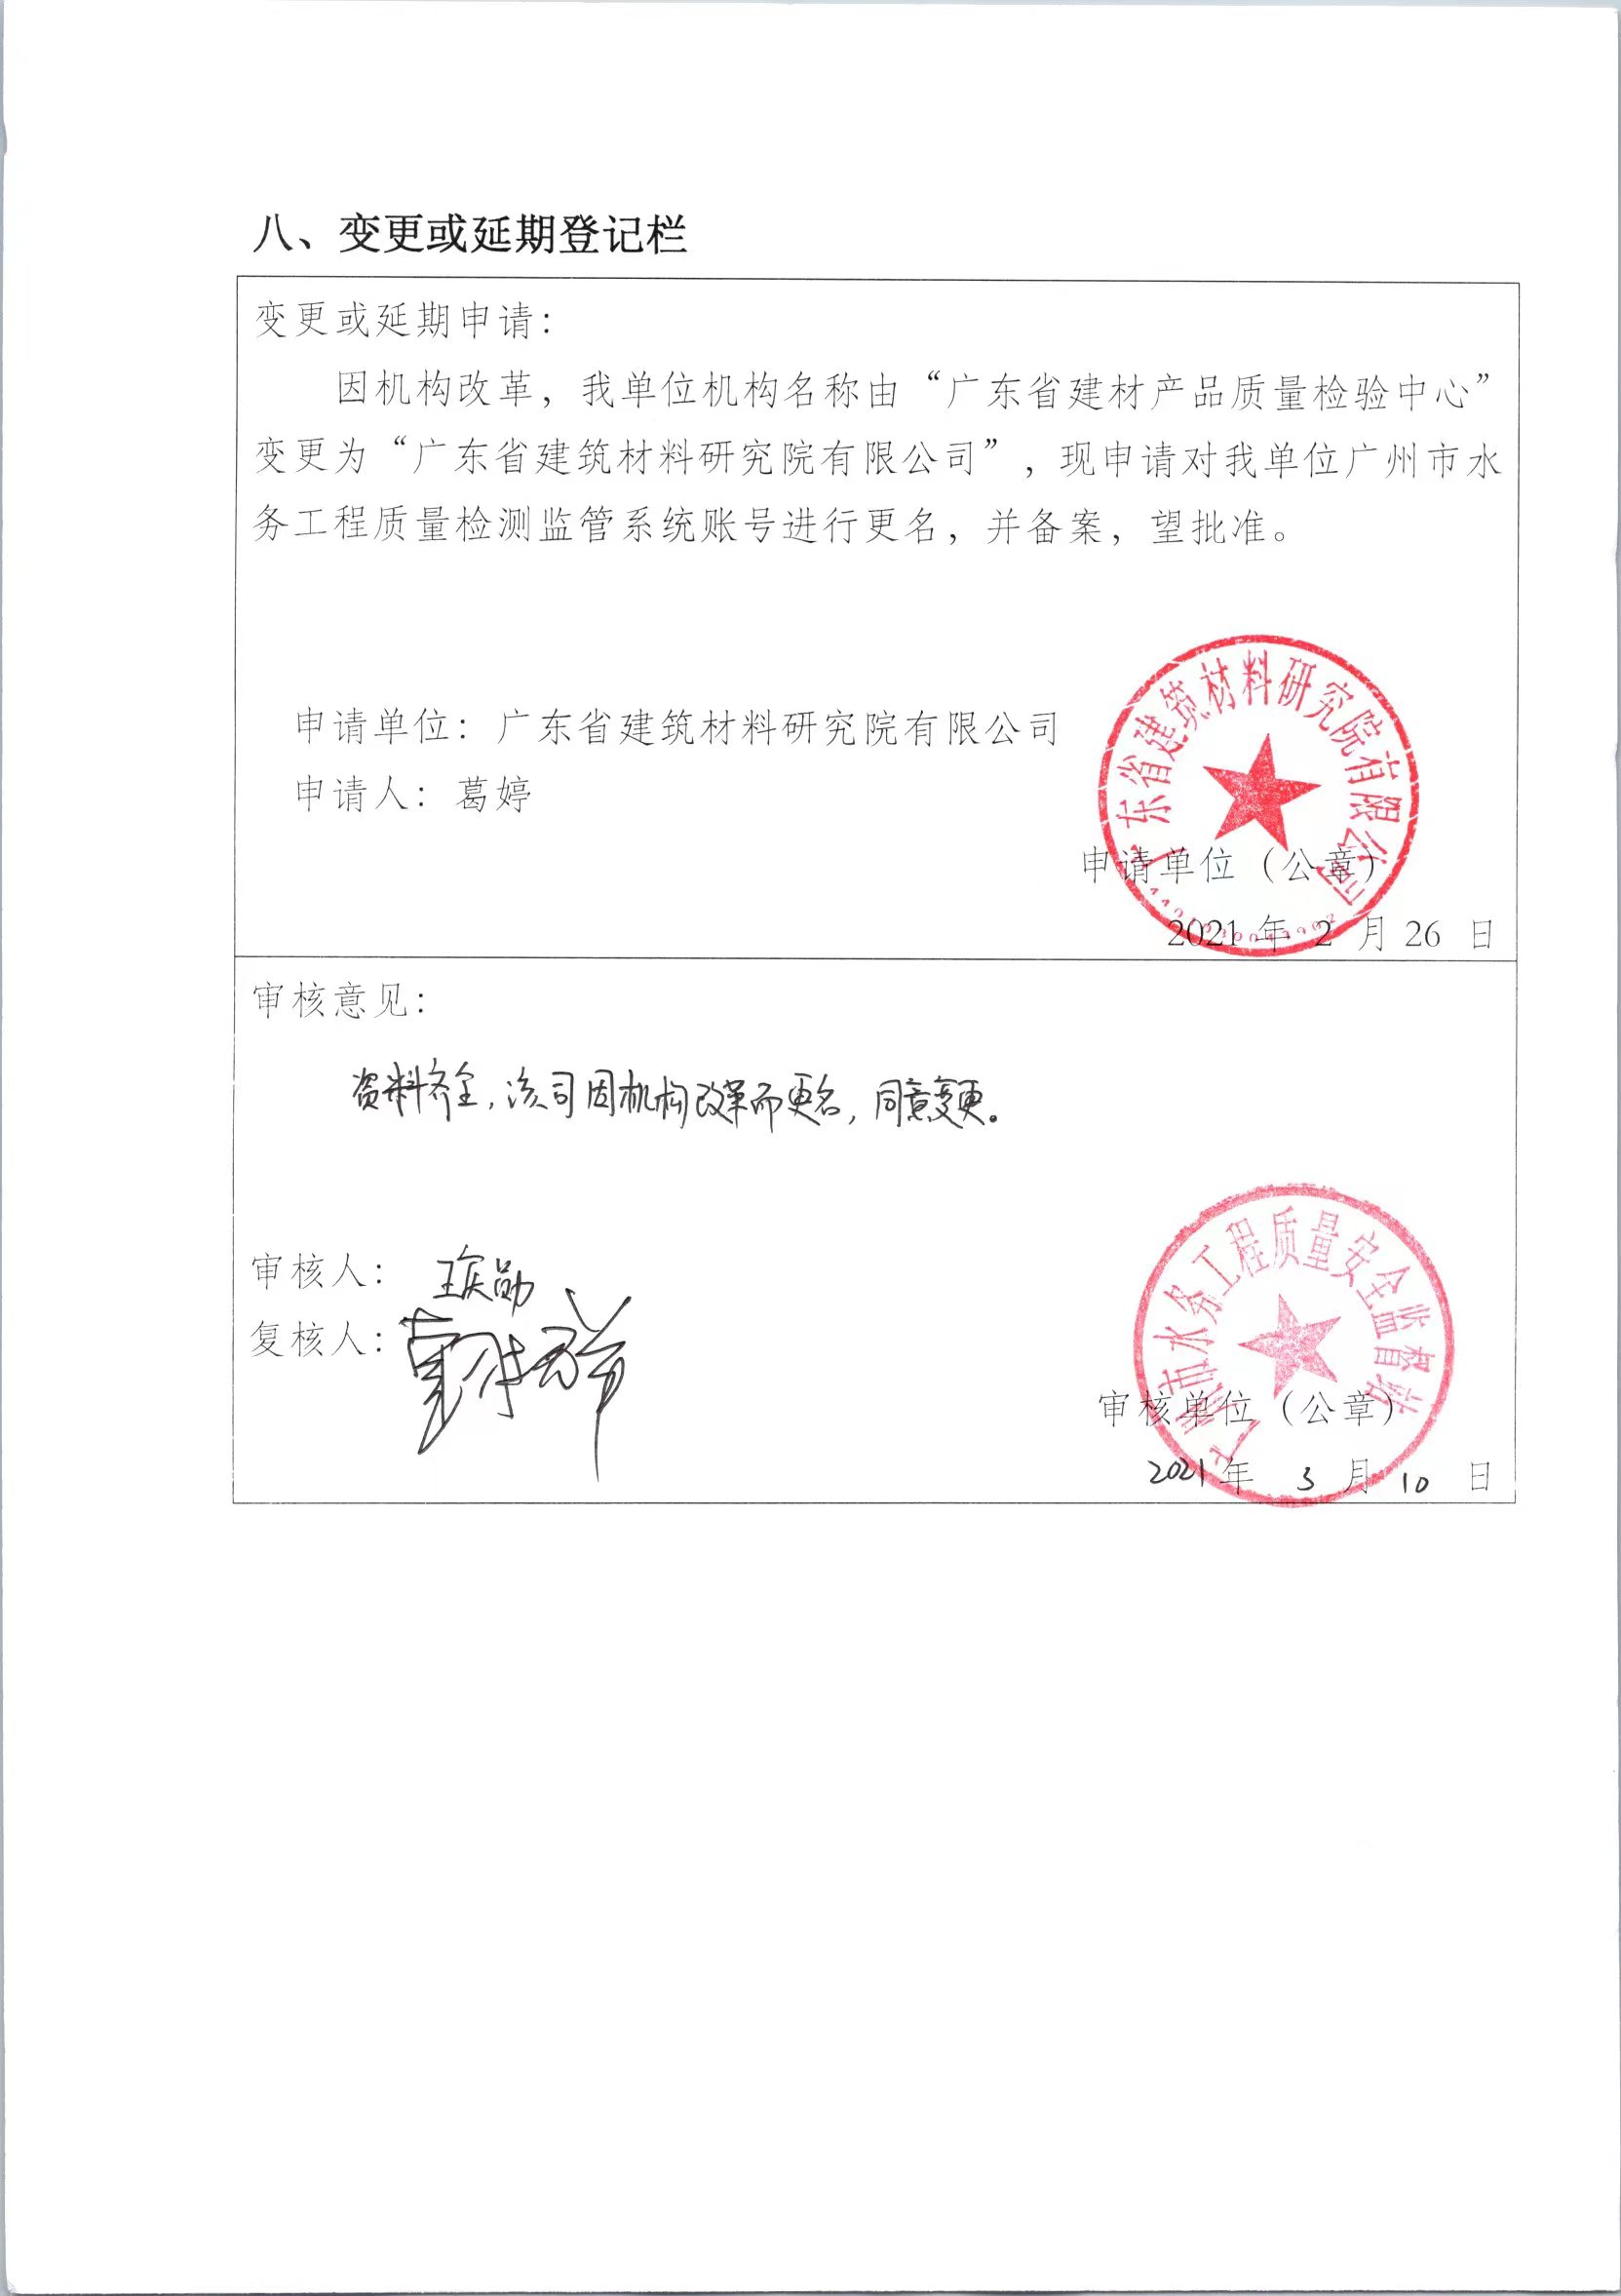 八、变更或延期登记栏
变更或延期申请：
因机构改革，我单位机构名称由“广东省建材产品质量检验中心”
变更为“广东省建筑材料研究院有限公司”，现申请对我单位广州市水
务工程质量检测监管系统账号进行更名，并备案，望批准。
广东省建筑材料研究院有限公司
申请单位：广东省建筑材料研究院有限公司
申请人：葛婷
申请单位（公章）
2021 年 2 月 26 日
审核意见：
资料齐全，该司因机构改革而更名，同意变更。
广州市水务工程质量安全监督站
审核人：
复核人：
审核单位（公章）
2021 年 3 月 10 日